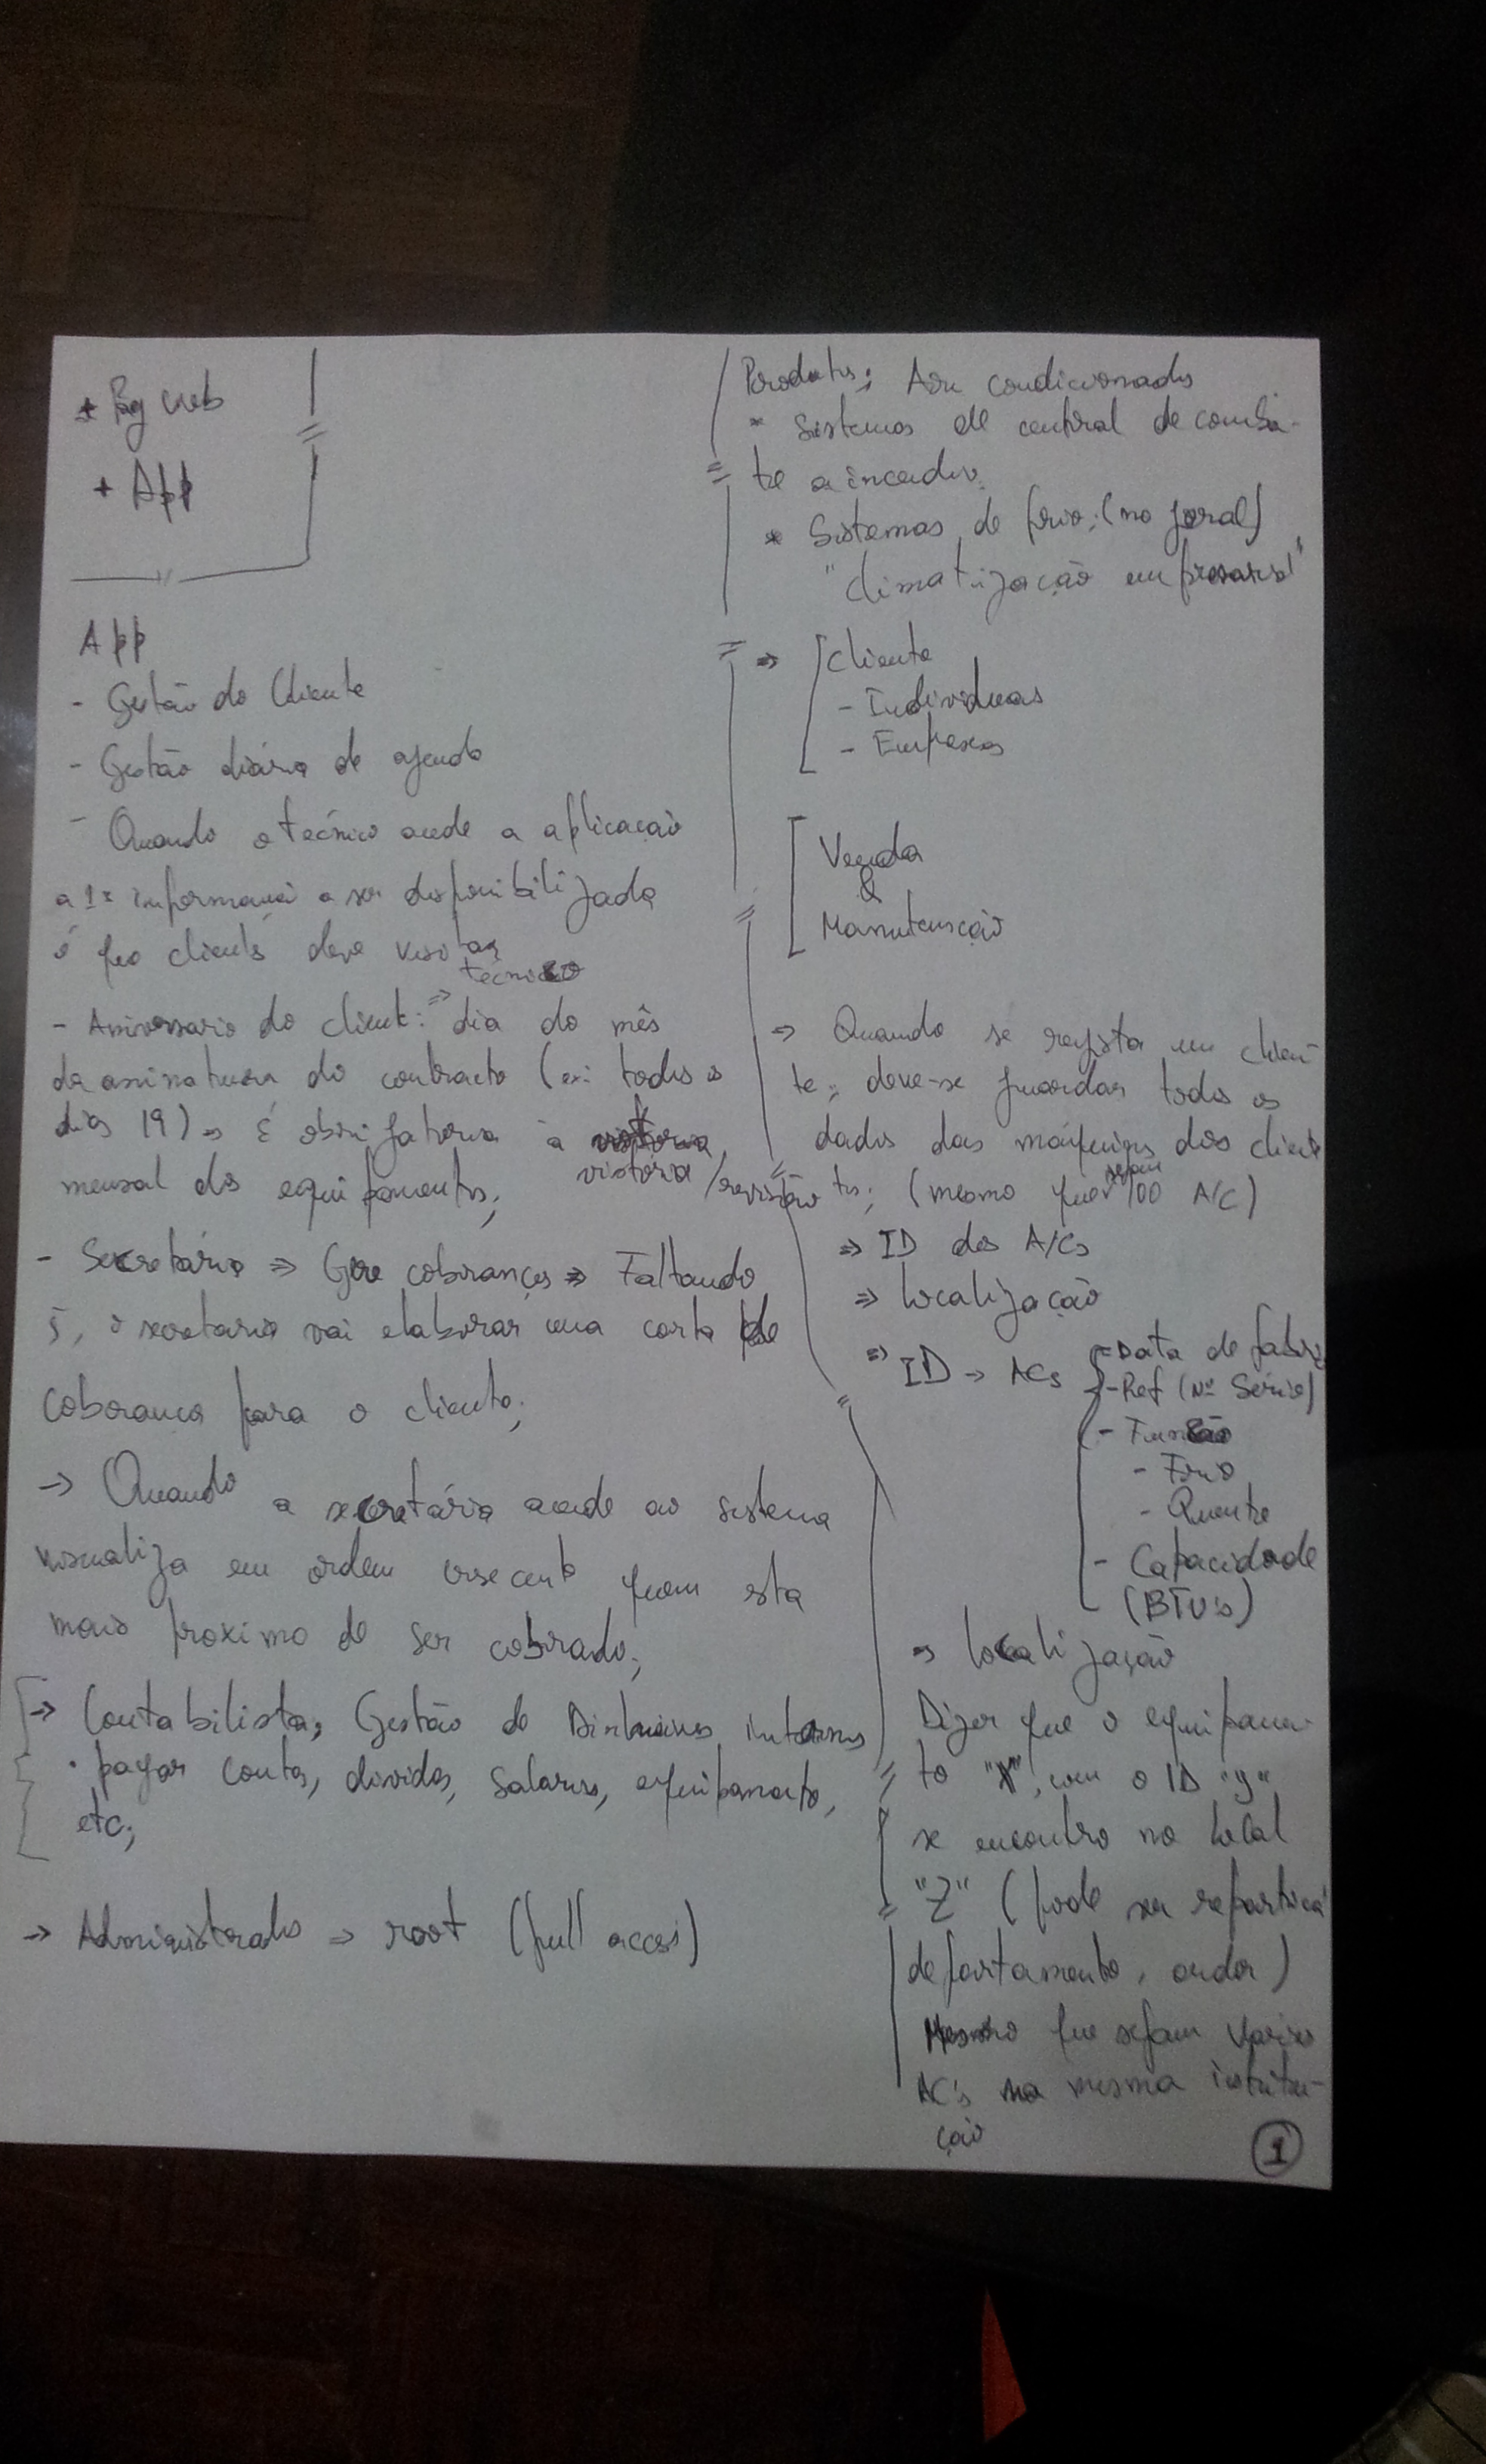 + Pag web
+ App
App
- Gestão do Cliente
- Gestão diária de agenda
- Quando o técnico acede a aplicação
a 1ª informação a ser disponibilizada
é que cliente deve visitar
técnico
- Aniversario do client: => dia do mês
da assinatura do contracto (ex: todos os
dias 19) => É obrigatoria a
mensal dos equipamentos; vistoria / revisão
- Secretária => Gere cobranças => Faltando
5, a secretaria vai elaborar uma carta de
cobranca para o cliente;
-> Quando a secretária acede ao sistema
visualiza em ordem crescente quem esta
mais proximo de ser cobrado;
-> Contabilista, Gestão de internos
• pagar contas, dividas, salarios, equipamento,
etc;
-> Administrador => root (full acces)
Produtos: Ar condicionados
* Sistemas de central de comba-
te a incendio;
* Sistemas de frio; (no geral)
"climatização empresarial"
=> Cliente
- Individuas
- Empresas
Venda
&
Manutenção
=> Quando se regista um clien-
te; deve-se guardar todos os
dados das máquinas dos clien
tes; (mesmo que sejam 100 A/C)
=> ID dos A/Cs
=> localização
=> ID -> ACs
- Data de fabri
- Ref (Nº Série)
- Função
- Frio
- Quente
- Capacidade
(BTU's)
=> localização
Dizer que o equipamen-
to "X", com o ID "y"
se encontra no local
"Z" (pode ser repartiçã
departamento, andar)
Mesmo que sejam varios
AC's na mesma institui-
ção
1